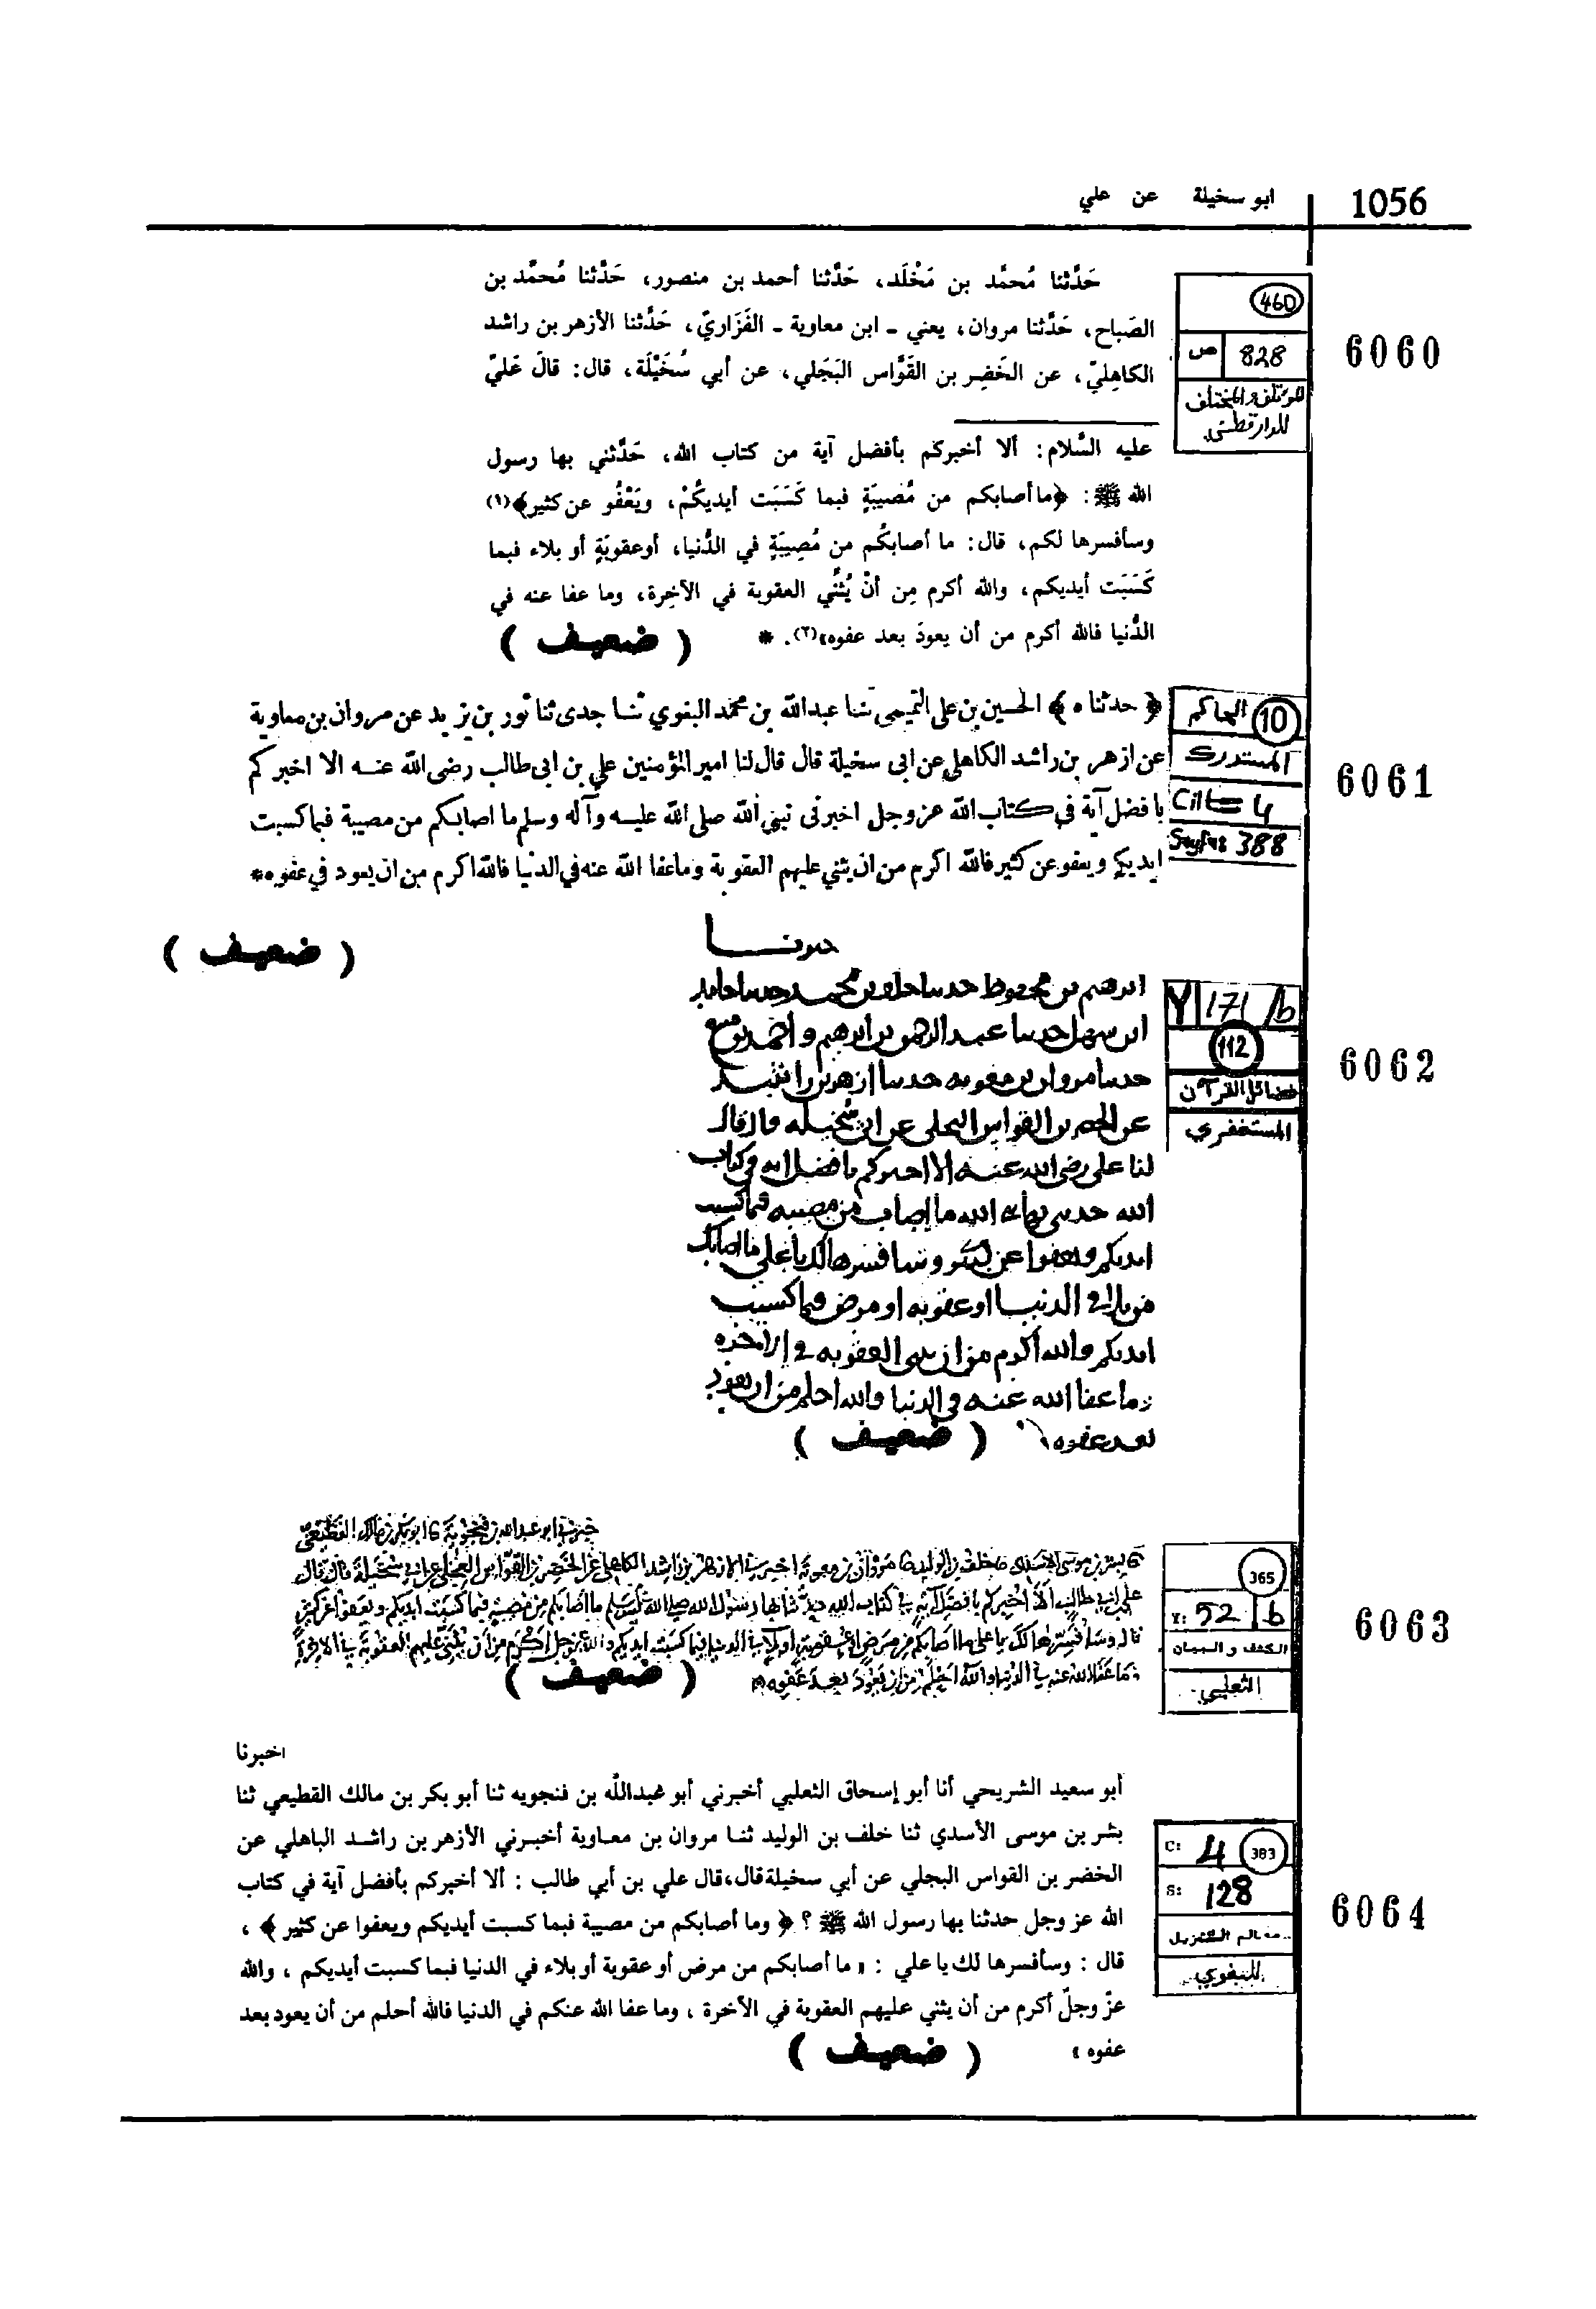 1056
ابو سخيلة عن علي
460
828 ص
المؤتلف والمختلف
للدارقطني
6060
حَدَّثنا مُحمَّد بن مَخْلَد، حَدَّثنا أحمد بن منصور، حَدَّثنا مُحمَّد بن
الصَباح، حَدَّثنا مروان، يعني - ابن معاوية - الفَزَاريّ، حَدَّثنا الأزهر بن راشد
الكاهِليّ، عن الخَضِر بن القَوَّاس البَجَلي، عن أبي سُخَيْلَة، قال: قالَ عَليّ
عليه السَّلام: ألا أخبركم بأفضل آية من كتاب الله، حَدَّثني بها رسول
الله ﷺ: ﴿ما أصابكم من مُصيبَةٍ فبما كَسَبَت أيديكُمْ، ويَعْفُو عن كثير﴾(١)
وسأفسرها لكم، قال: ما أصابكُم من مُصِيبَةٍ في الدُّنيا، أو عقوبَةٍ أو بلاء فبما
كَسَبَت أيديكم، والله أكرم مِن أنْ يُثنِّي العقوبة في الآخِرة، وما عفا عنه في
الدُّنيا فالله أكرم من أن يعودَ بعد عفوه»(٢). *
( ضعيف )
الحاكم 10
المستدرك
Cilt= 4
Sayfa: 388
6061
﴿ حدثناه ﴾ الحسين بن علي التميمي ثنا عبدالله بن محمد البغوي ثنا جدى ثنا ثور بن يزيد عن مروان بن معاوية
عن ازهر بن راشد الكاهلي عن ابى سخيلة قال قال لنا امير المؤمنين علي بن ابى طالب رضى الله عنه الا اخبركم
بافضل آية في كتاب الله عز وجل اخبرنى نبي الله صلى الله عليه وآله وسلم ما اصابكم من مصيبة فبما كسبت
ايديكم ويعفو عن كثير فالله اكرم من ان يثني عليهم العقوبة وما عفا الله عنه في الدنيا فالله اكرم من ان يعود في عفوه*
( ضعيف )
Y 171/b
112
فضائل القرآن
المستغفري
6062
حدثنا
ابرهيم بن محفوظ حدثنا خلف بن محمد حدثنا حامد
ابن سهل حدثنا عبد الرحمن بن ابرهيم وأحمد بن منيع
حدثنا مروان بن معويه حدثنا ازهر بن راشد
عن الخضر بن القواس البجلي عن ابي سُخيله قال قال
لنا علي رضي الله عنه الا اخبركم بافضل ايه في كتاب
الله حدثني بها نبي الله ما اصابكم من مصيبه فبما كسبت
ايديكم ويعفوا عن كثير وسافسرها لك يا علي ما اصابك
من بلاء في الدنيا او عقوبه او مرض فبما كسبت
ايديكم والله أكرم من ان يثني العقوبه في الاخره
وما عفا الله عنه في الدنيا والله احلم من ان يعود
بعد عفوه
( ضعيف )
365
Y: 52 b
الكشف والبيان
الثعلبي
6063
ابو عبدالله بن فنجوية ابو بكر بن مالك القطيعي
بشر بن موسى الاسدي خلف بن الوليد مروان بن معوية اخبرني الازهر بن راشد الكاهلي عن الخضر بن القواس البجلي عن ابي سخيلة قال قال
علي بن ابي طالب ألا اخبركم بافضل آية في كتاب الله حدثنا بها رسول الله صلى الله عليه وسلم ما أصابكم من مصيبة فبما كسبت ايديكم ويعفو عن كثير
قال وسأفسرها لك يا علي ما اصابكم من مرض او عقوبة او بلاء في الدنيا فبما كسبت ايديكم والله عز وجل اكرم من أن يثني عليهم العقوبة في الاخرة
وما عفا الله عنه في الدنيا والله احلم من ان يعود بعد عفوه
( ضعيف )
C: 4 383
S: 128
معالم التنزيل
للبغوي
6064
اخبرنا
أبو سعيد الشريحي أنا أبو إسحاق الثعلبي أخبرني أبو عبدالله بن فنجويه ثنا أبو بكر بن مالك القطيعي ثنا
بشر بن موسى الأسدي ثنا خلف بن الوليد ثنا مروان بن معاوية أخبرني الأزهر بن راشد الباهلي عن
الخضر بن القواس البجلي عن أبي سخيلة قال، قال علي بن أبي طالب : ألا أخبركم بأفضل آية في كتاب
الله عز وجل حدثنا بها رسول الله ﷺ ؟ ﴿ وما أصابكم من مصيبة فبما كسبت أيديكم ويعفوا عن كثير ﴾ ،
قال : وسأفسرها لك يا علي : « ما أصابكم من مرض أو عقوبة أو بلاء في الدنيا فبما كسبت أيديكم ، والله
عزّ وجلّ أكرم من أن يثني عليهم العقوبة في الآخرة ، وما عفا الله عنكم في الدنيا فالله أحلم من أن يعود بعد
عفوه »
( ضعيف )